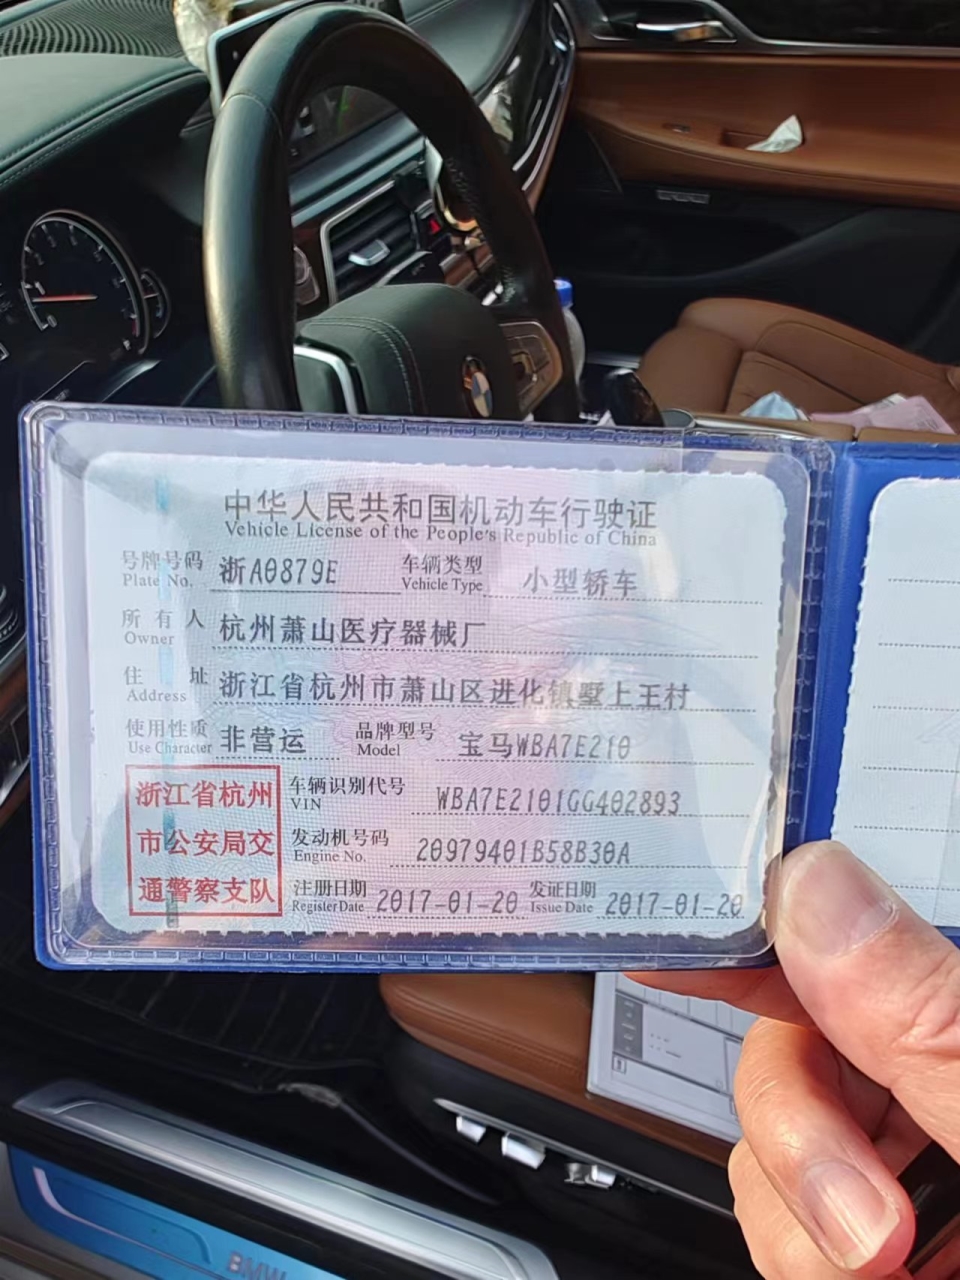 中华人民共和国机动车行驶证
Vehicle License of the People's Republic of China
号牌号码 浙A0879E 车辆类型 小型轿车
Plate No. Vehicle Type
所有人 杭州萧山医疗器械厂
Owner
住址 浙江省杭州市萧山区进化镇墅上王村
Address
使用性质 非营运 品牌型号 宝马WBA7E210
Use Character Model
浙江省杭州
市公安局交
通警察支队
车辆识别代号 WBA7E2101GG402893
VIN
发动机号码 20979401B58B30A
Engine No.
注册日期 2017-01-20 发证日期 2017-01-20
Register Date Issue Date
BMW